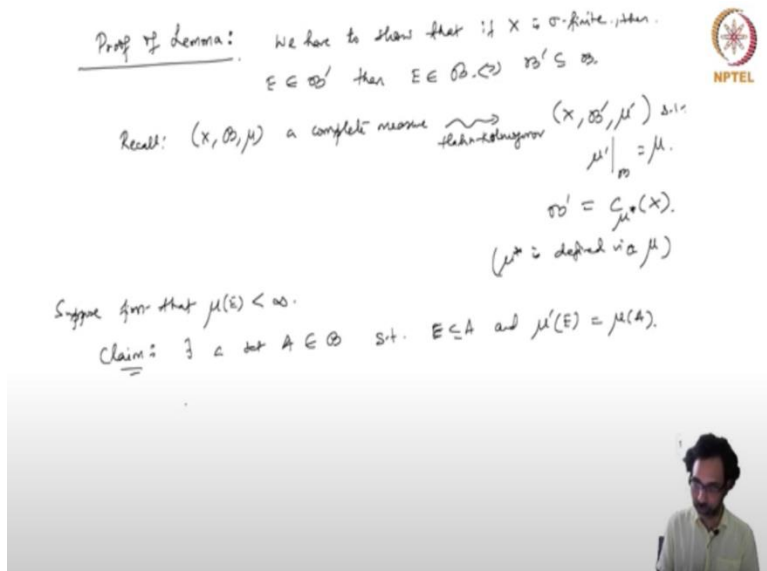 Proof of Lemma: We have to show that if X is σ-finite, then
E ∈ 𝓑' then E ∈ 𝓑 ⇔ 𝓑' ⊆ 𝓑.
NPTEL
Recall: (X, 𝓑, μ) a complete measure ⇝ (X, 𝓑', μ') s.t.
Hahn-Kolmogorov
μ'|_𝓑 = μ.
𝓑' = C_μ*(X).
(μ* is defined via μ)
Suppose first that μ(E) < ∞.
Claim: ∃ a set A ∈ 𝓑 s.t. E ⊆ A and μ'(E) = μ(A).